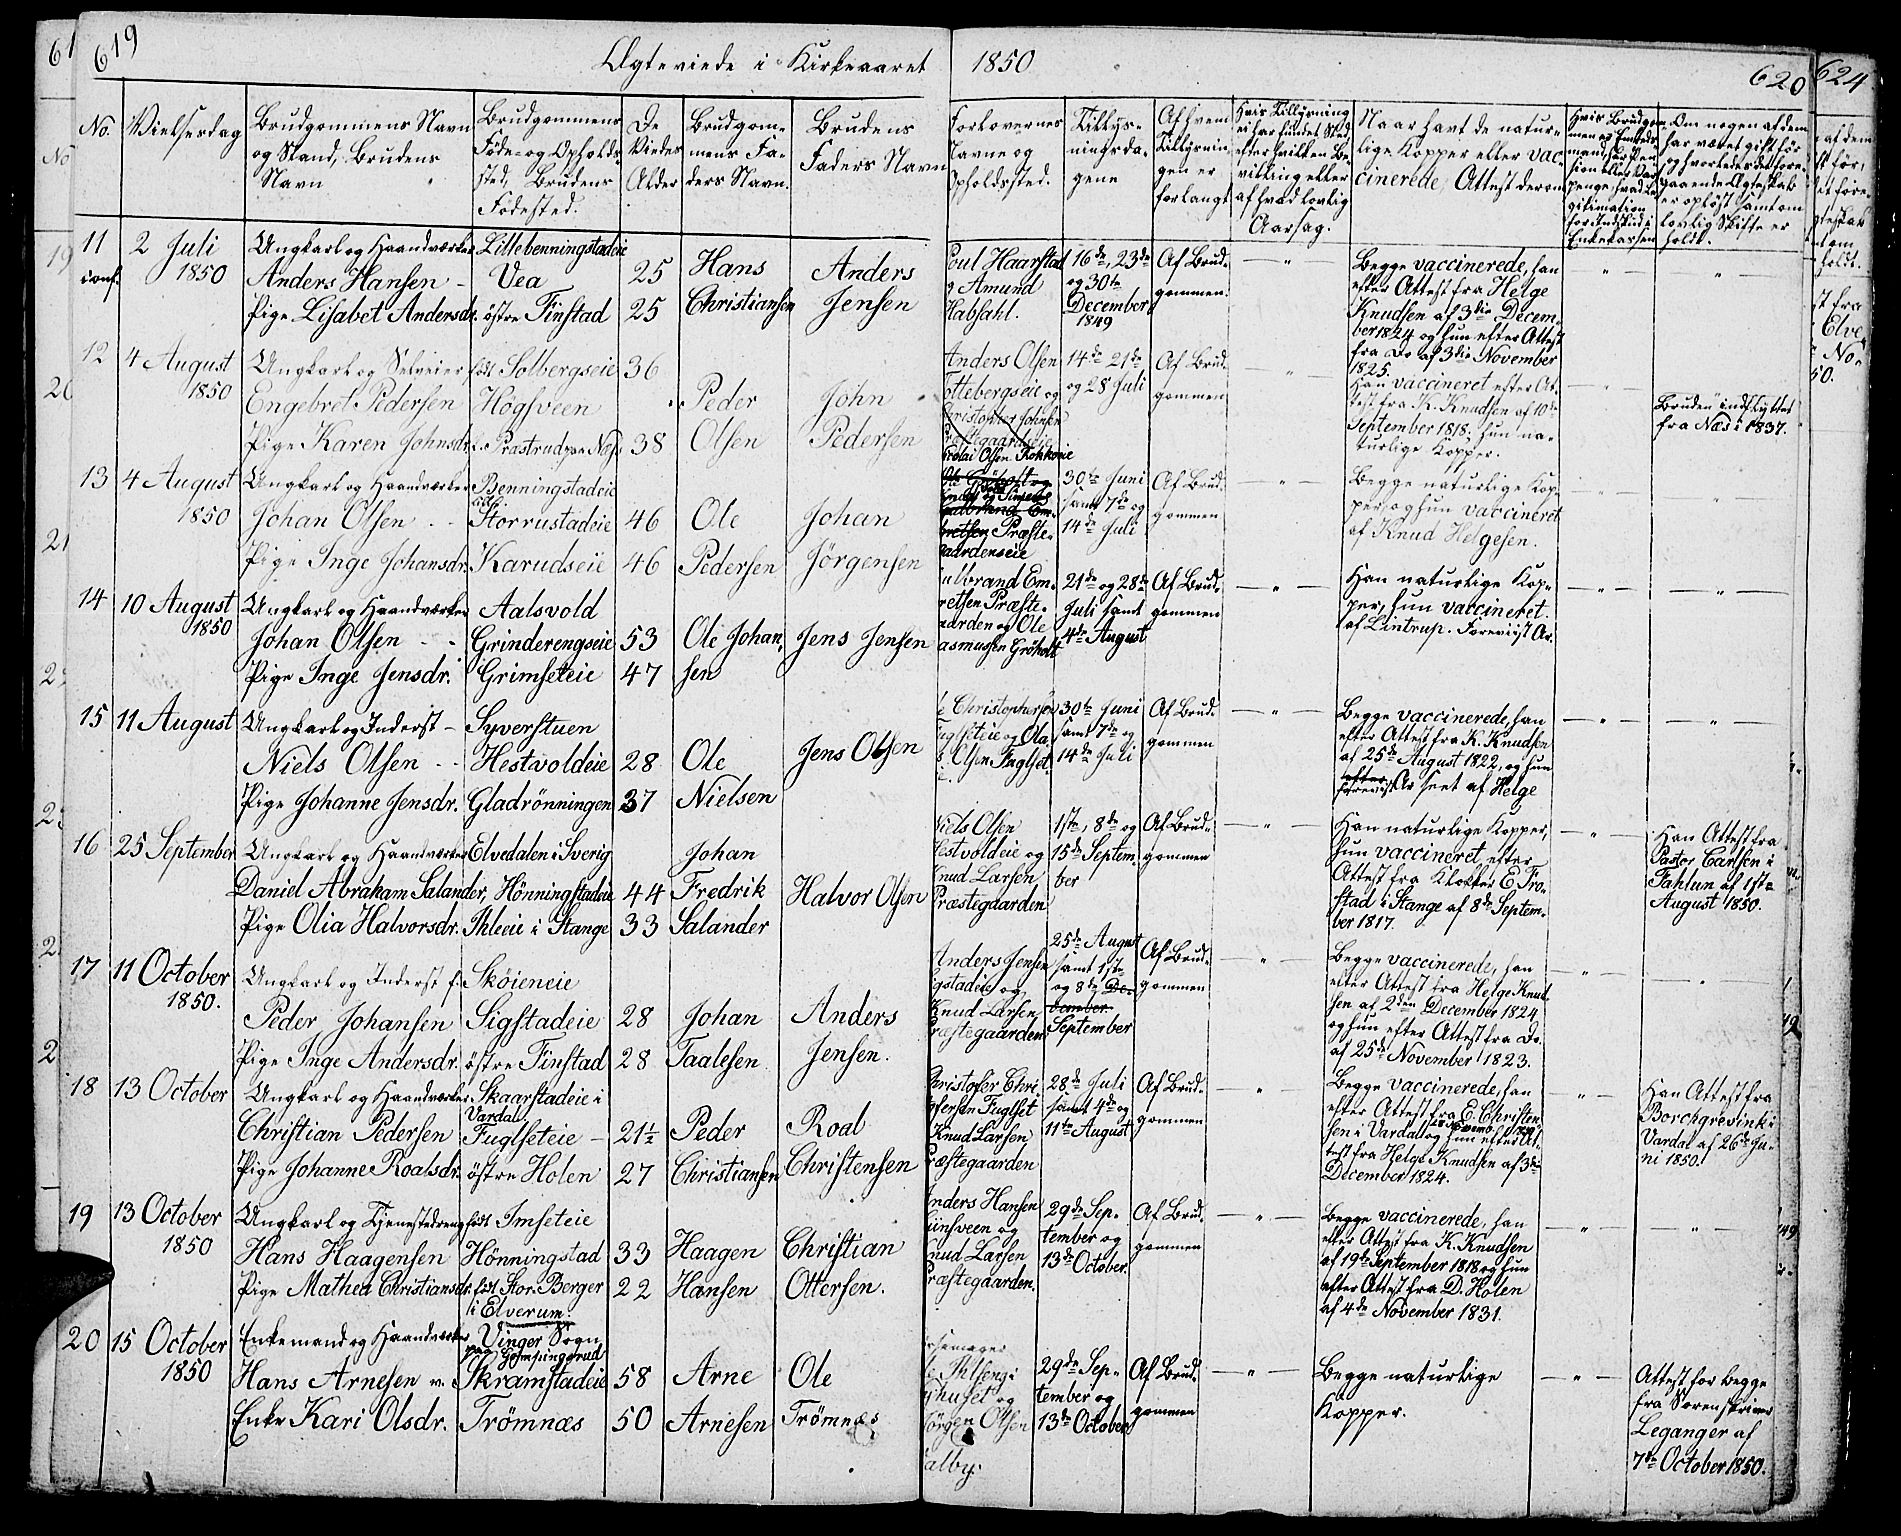 619
Ægteviede i Kirkeaaret 1850
620
624
No.
Vielsesdag
Brudgommens Navn
og Stand, Brudens
Navn
Brudgommens
Føde- og Opholds-
sted, Brudens
Fødested.
De
Viedes
Alder
Brudgom-
mens Fa-
ders Navn.
Brudens
Faders Navn
Forlovernes
Navne og
Opholdssted.
Tillys-
ningsda-
gene
Af hvem
Tillysnin-
gen er
forlangt
Hvis Tillysning
ei har fundet Sted
efter hvilken Be-
villing eller
af hvad lovlig
Aarsag.
Naar havt de natur-
lige Kopper eller vac-
cinerede, Attest derom
Om nogen af dem
har været gift før
og hvorledes det fore-
gaaende Ægteskab
er opløst samt om
lovlig Skifte er
holdt.
11
conf.
2 Juli
1850
Ungkarl og Haandværker
Anders Hansen
Pige Lisabet Andersdr.
Lillebenningstadeie
Vea
østre Finstad
25
25
Hans
Christiansen
Anders
Jensen
Poul Haarstad
og Amund
Habsahl.
16de, 23de
og 30te
December
1849
Af Brud-
gommen.
Begge vaccinerede, han
efter Attest fra Helge
Knudsen af 3die Decem-
ber 1824 og hun efter Attest
fra Do af 3die November
1825.
12
4 August
1850
Ungkarl og Selveier
Engebret Pedersen
Pige Karen Johnsdr.
født Solbergseie
Høgsveen
Præstrud paa Næs
36
38
Peder
Olsen
John
Pedersen
Anders Olsen
14de 21de
og 28 Juli
Af Brud-
gommen
Han vaccineret efter At-
test fra K. Knudsen af 10de
September 1818, hun na-
turlige Kopper.
Bruden indflyttet
fra Næs i 1837.
13
4 August
1850
Ungkarl og Haandværker
Johan Olsen
Pige Inge Johansdr.
Benningstadeie
Storrustadeie
Karudseie
46
46
Ole
Pedersen
Johan
Jørgensen
Præste-
gaardenseie
30te Juni
samt 7de og
14de Juli
Af Brud-
gommen
Begge naturlige Kop-
per, og hun vaccineret
af Knud Helgesen.
14
10 August
1850
Ungkarl og Haandværker
Johan Olsen
Pige Inge Jensdr.
Aalsvold
Grinderengseie
Grimseteie
53
47
Ole Johan-
sen
Jens Jensen
Gulbrand Em-
bretsen Præste-
gaarden og Ole
Rasmussen Grøholt
21de og 28de
Juli samt
4de August
Af Brud-
gommen
Han naturlige Kop-
per, hun vaccineret
af Lintrup. Foreviist Ar.
15
11 August
Ungkarl og Inderst
Niels Olsen
Pige Johanne Jensdr.
Syverstuen
Hestvoldeie
Gladrønningen
28
37
Ole
Nielsen
Jens Olsen
Ole Christophersen
Fuglseteie og Ola
Olsen Fuglset-
30te Juni
samt 7de og
14de Juli
Af Brud-
gommen
Begge vaccinerede, han
efter Attest fra K. Knudsen
af 25de August 1822, og hun
foreviist Ar seet af Helge
16
25 September
Ungkarl og Haandværker
Daniel Abraham Salander,
Pige Olia Halvorsdr.
Elvedalen i Sverig
Hønningstadeie
Ihleeie i Stange
44
33
Johan
Fredrik
Salander
Halvor Olsen
Niels Olsen
Hestvoldeie og
Knud Larsen
Præstegaarden
1ste, 8de og
15de Septem-
ber
Af Brud-
gommen
Han naturlige Kopper,
hun vaccineret, efter
Attest fra Klokker E. Fro-
stad i Stange af 8de Septem-
ber 1817.
Han Attest fra
Pastor Carlsen i
Fahlun af 1ste
August 1850.
17
11 October
1850.
Ungkarl og Inderst f.
Peder Johansen
Pige Inge Andersdr.
Skøieneie
Sigstadeie
østre Finstad
28
28
Johan
Taalesen
Anders
Jensen.
Anders Jensen
Sigstadeie og
Knud Larsen
Præstegaarden
25de August
samt 1ste
og 8de De-
cember
September
Af Brud-
gommen
Begge vaccinerede, han
efter Attest fra Helge Knud-
sen af 2den December 1824
og hun efter Attest fra Do.
af 25de November 1823.
18
13 October
Ungkarl og Haandværker
Christian Pedersen
Pige Johanne Roalsdr.
Skaarstadeie i
Vardal
Fuglseteie
østre Holen
21½
27
Peder
Christiansen
Roal
Christensen
Christofer Chri-
stofersen Fuglset
Knud Larsen
Præstegaarden
28de Juli
samt 4de og
11te August
Af Brud-
gommen
Begge vaccinerede, han
efter Attest fra E. Christen-
sen i Vardal og hun efter At-
test fra Helge Knudsen af 3die
December 1824.
Han Attest fra
Borchgrevink i
Vardal af 26de Ju-
ni 1850.
19
13 October
1850
Ungkarl og Tjenestedreng
Hans Haagensen
Pige Mathea Christiansdr.
født Imseteie
Hønningstad
født Stor. Berger
i Elverum.
33
22
Haagen
Hansen
Christian
Ottersen.
Anders Hansen
Knud Larsen
Præstegaarden.
29de Sep-
tember og
13de October.
Af Brud-
gommen
Begge vaccinerede, han
efter Attest fra K. Knudsen
af 19de September 1818 og hun
efter Attest fra D. Holen
af 4de November 1831.
20
15 October
1850
Enkemand og Haandværker
Hans Arnesen
Enke Kari Olsdr.
Vinger Sogn
Skramstadeie
Trømnæs
58
50
Arne
Arnesen
Ole
Trømnæs
Jørgen Olsen
Dalby.
29de Sep-
tember og
13de October
Af Brud-
gommen
Begge naturlige
Kopper.
Attest for begge
fra Sorenskriver
Leganger af
7de October 1850.